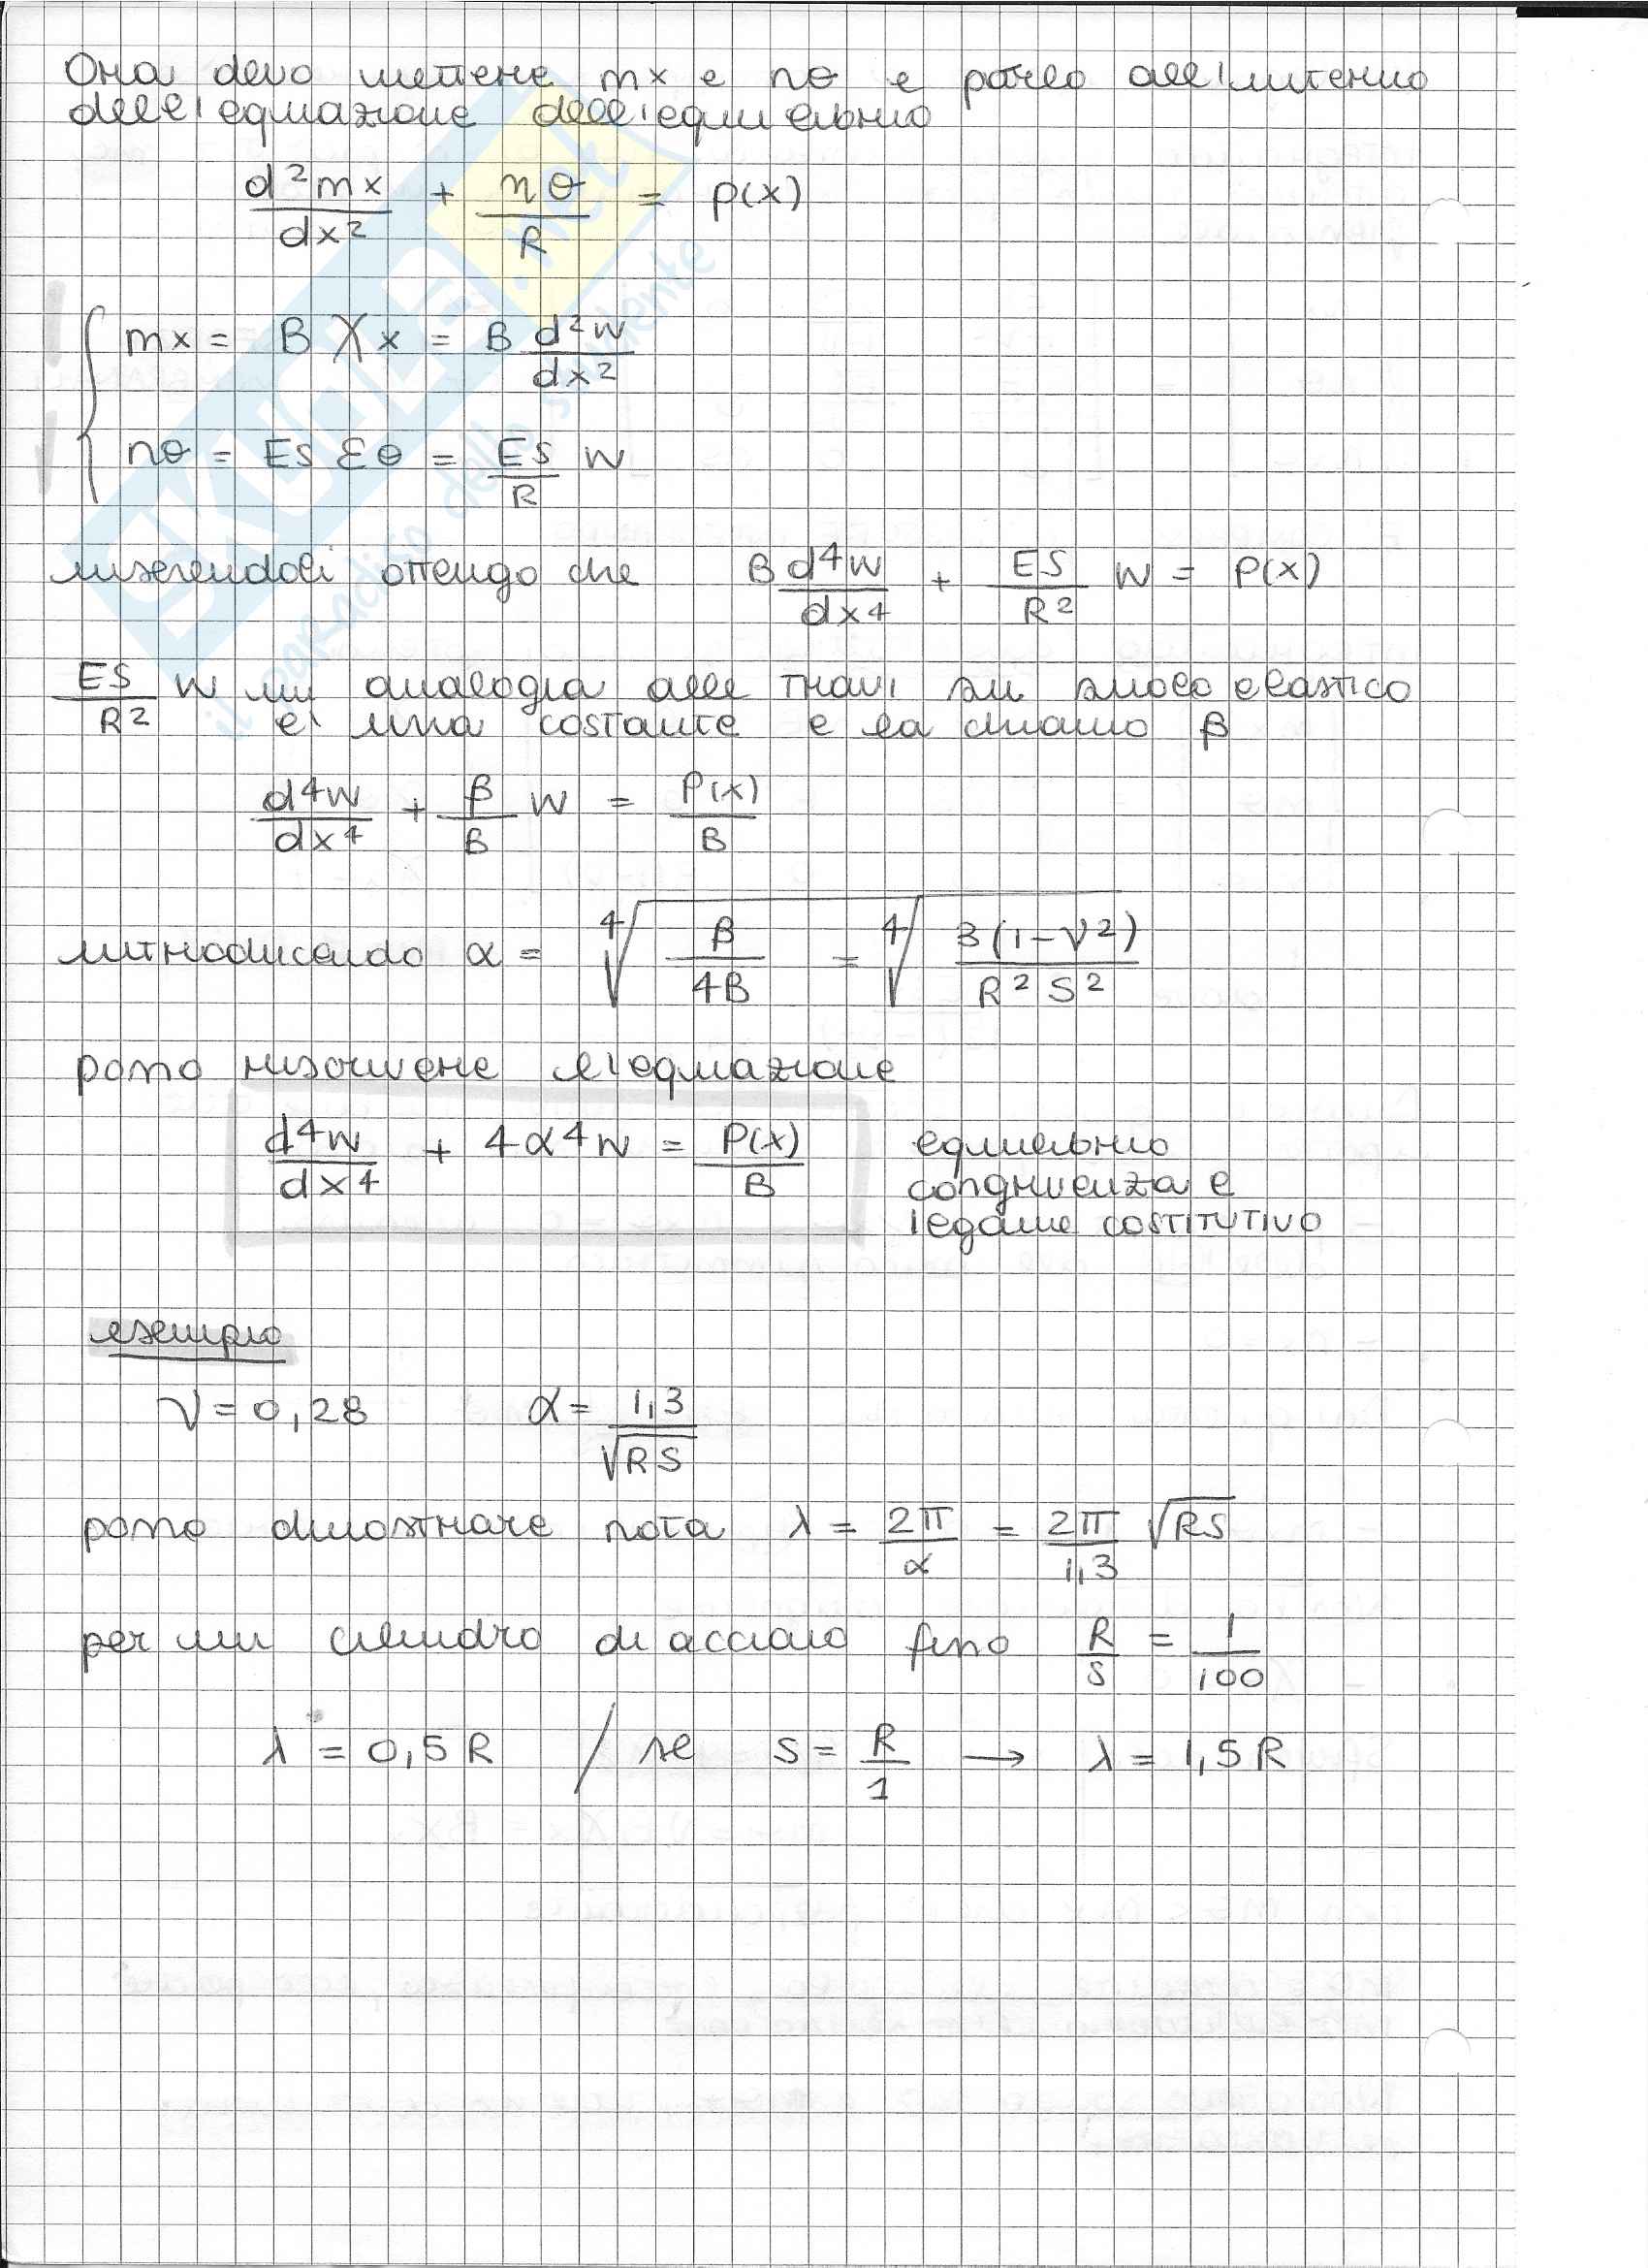 Ora devo mettere mx e nθ e porlo all'interno
dell'equazione dell'equilibrio
d²mx/dx² + nθ/R = p(x)
mx = B χx = B d²w/dx²
nθ = Es εθ = Es/R w
inserendoli ottengo che B d⁴w/dx⁴ + Es/R² w = p(x)
Es/R² w in analogia alle travi su suolo elastico
e' una costante e la chiamo β
d⁴w/dx⁴ + β/B w = p(x)/B
introducendo α = ⁴√(β/4B) = ⁴√(3(1-ν²)/R²S²)
posso riscrivere l'equazione
d⁴w/dx⁴ + 4α⁴w = p(x)/B equilibrio
congruenza e
legame costitutivo
esempio
ν = 0,28 α = 1,3/√RS
posso dimostrare nota λ = 2π/α = 2π/1,3 √RS
per un cilindro di acciaio fino R/s = 1/100
λ = 0,5R / se s = R/1 → λ = 1,5R
SKUOLA.net
il paradiso dello studente